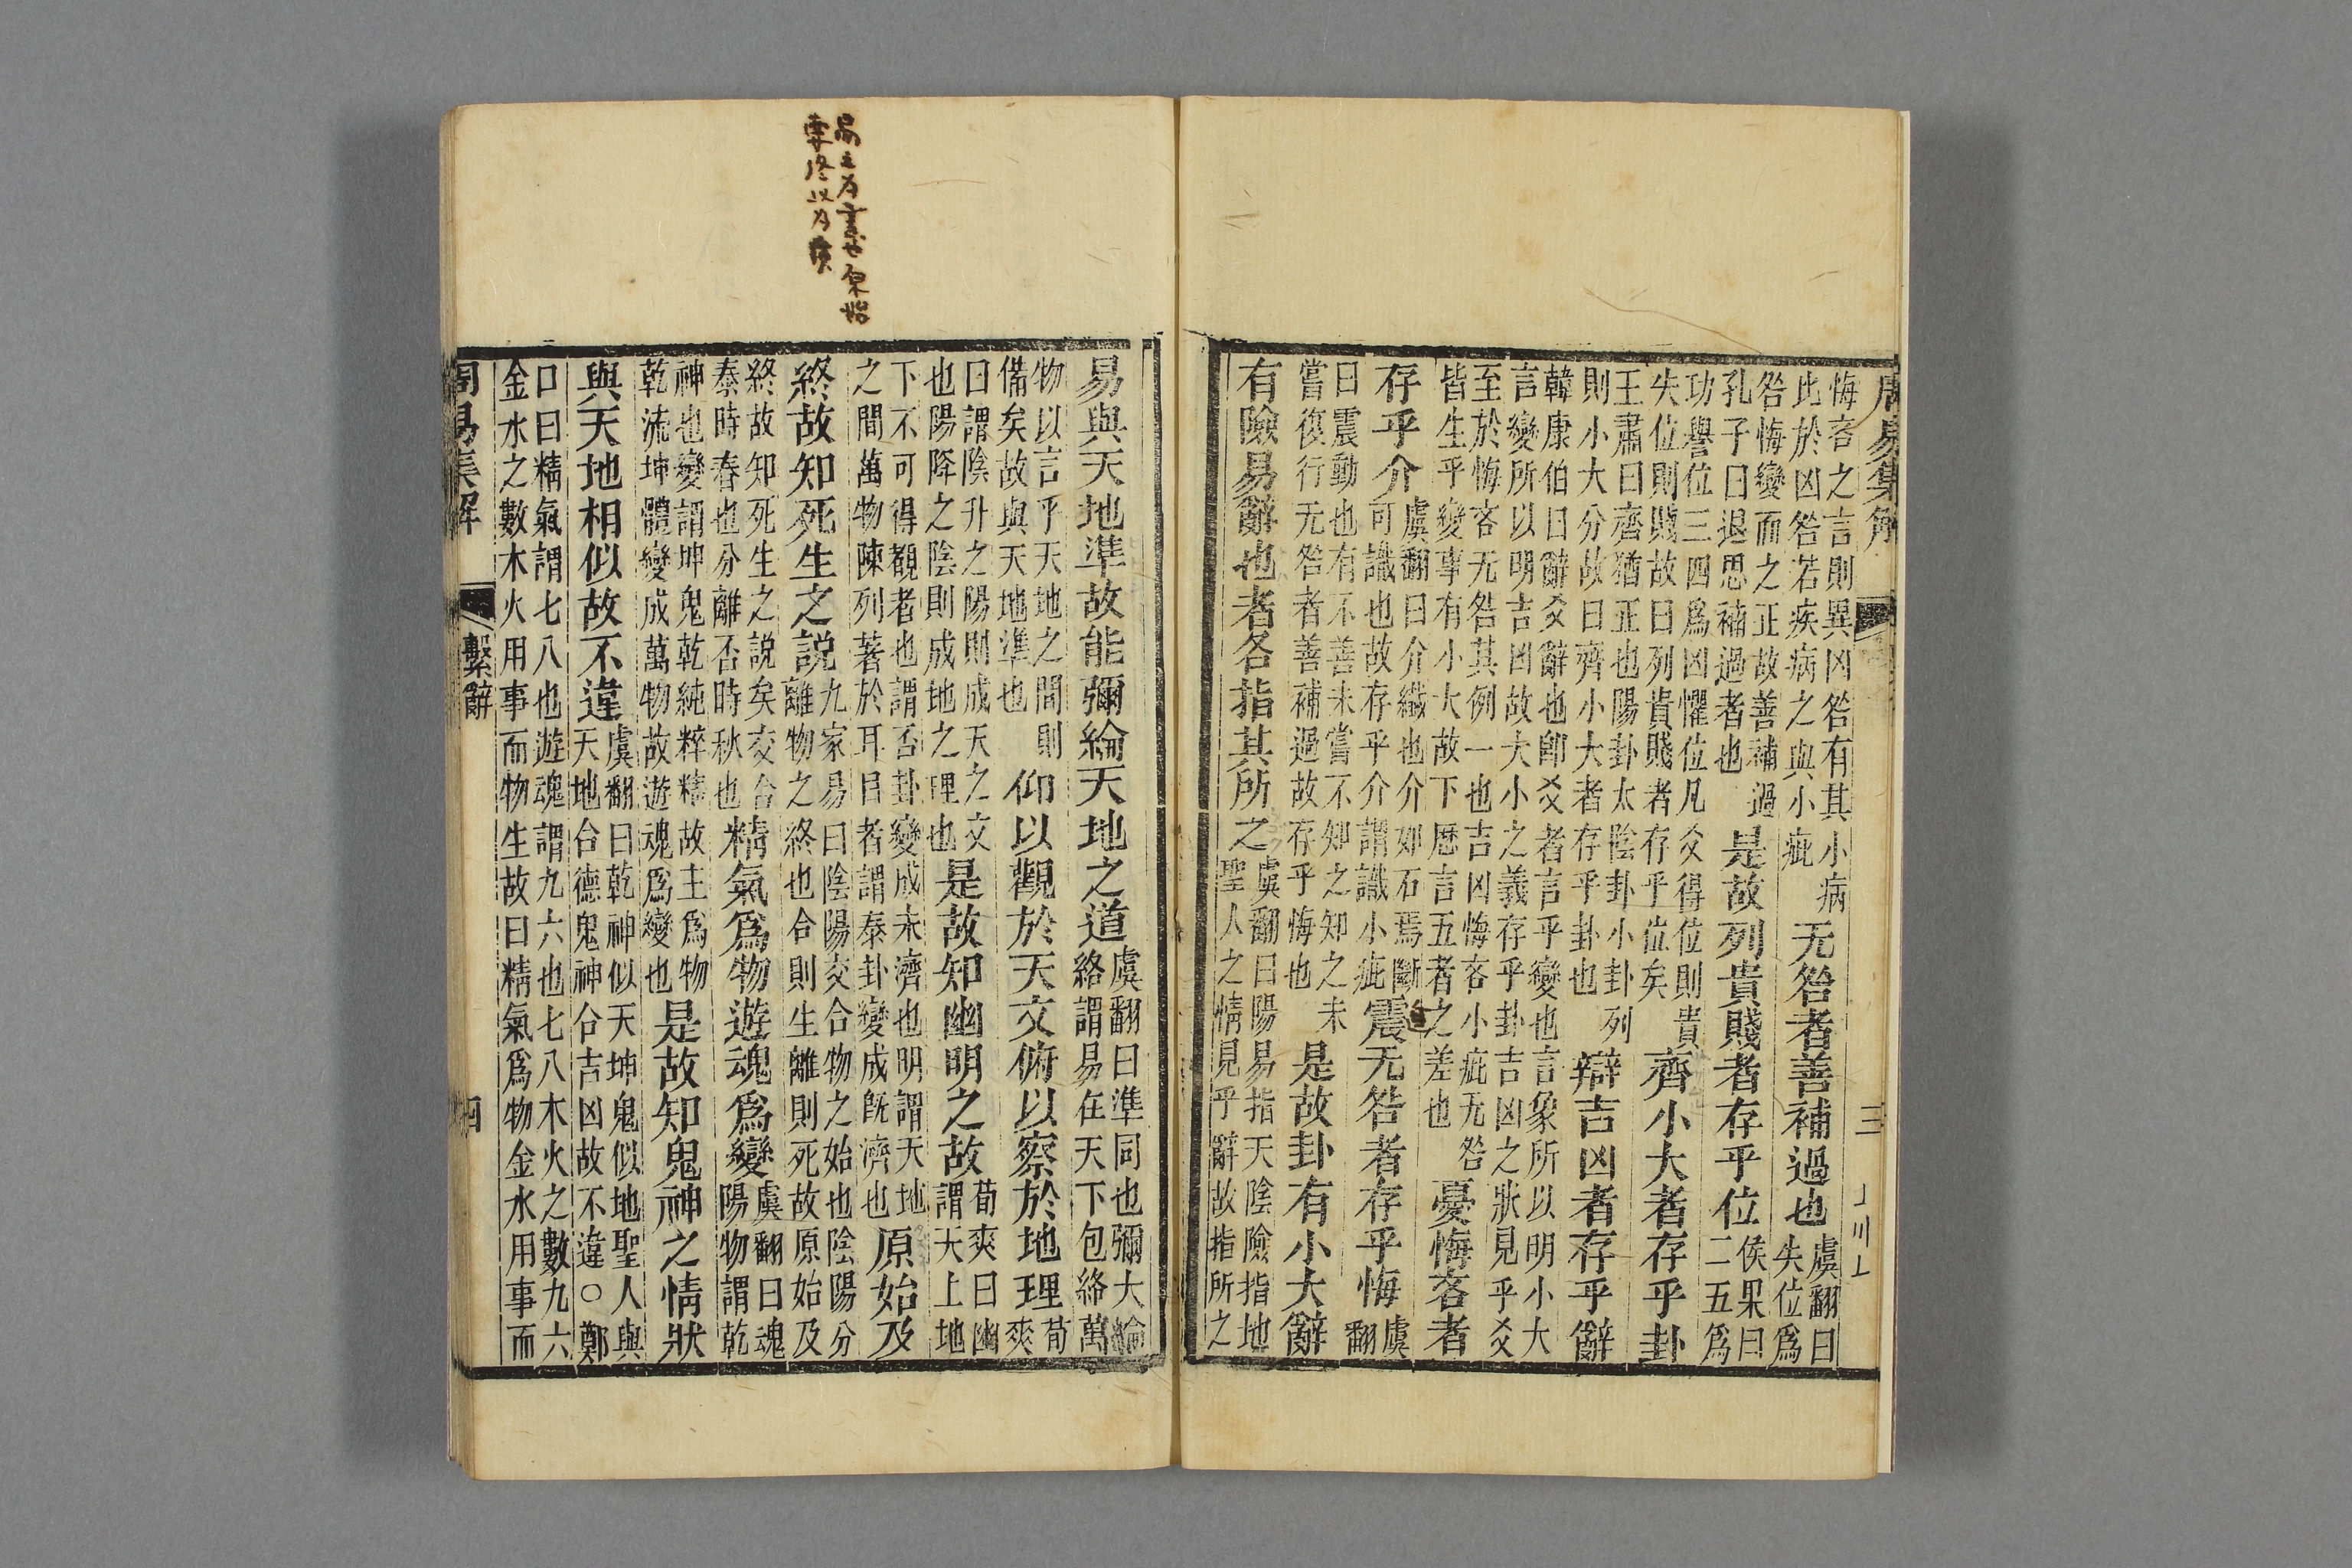 周易集解
三
悔吝之言則異凶咎有其小病
此於凶咎若疾病之與小疵
无咎者善補過也
虞翻曰
失位爲
咎悔變而之正故善補過
孔子曰退思補過者也
是故列貴賤者存乎位
侯果曰
二五爲
功譽位三四爲凶懼位凡爻得位則貴
失位則賤故曰列貴賤者存乎位矣
齊小大者存乎卦
王肅曰齊猶正也陽卦大陰卦小卦列
則小大分故曰齊小大者存乎卦也
辯吉凶者存乎辭
韓康伯曰辭爻辭也卽爻者言乎變也言象所以明小大
言變所以明吉凶故大小之義存乎卦吉凶之狀見乎爻
至於悔吝无咎其例一也吉凶悔吝小疵无咎
皆生乎變事有小大故下歷言五者之差也
憂悔吝者
存乎介
虞翻曰介纖也介如石焉斷
可識也故存乎介謂識小疵
震无咎者存乎悔
虞
翻
曰震動也有不善未嘗不知之知之未
嘗復行无咎者善補過故存乎悔也
是故卦有小大辭
有險易辭也者各指其所之
虞翻曰陽易指天陰險指地
聖人之情見乎辭故指所之
易與天地準故能彌綸天地之道
虞翻曰準同也彌大綸
絡謂易在天下包絡萬
物以言乎天地之間則
備矣故與天地準也
仰以觀於天文俯以察於地理
荀
爽
曰謂陰升之陽則成天之文
也陽降之陰則成地之理也
是故知幽明之故
荀爽曰幽
謂天上地
下不可得覩者也謂否卦變成未濟也明謂天地
之間萬物陳列著於耳目者謂泰卦變成旣濟也
原始及
終故知死生之說
九家易曰陰陽交合物之始也陰陽分
離物之終也合則生離則死故原始及
終故知死生之說矣交合
泰時春也分離否時秋也
精氣爲物遊魂爲變
虞翻曰魂
陽物謂乾
神也變謂坤鬼乾純粹精故主爲物
乾流坤體變成萬物故遊魂爲變也
是故知鬼神之情狀
與天地相似故不違
虞翻曰乾神似天坤鬼似地聖人與
天地合德鬼神合吉凶故不違○鄭
口曰精氣謂七八也遊魂謂九六也七八木火之數九六
金水之數木火用事而物生故曰精氣爲物金水用事而
周易集解
繫辭
四
易之为書也原始
要终以为質